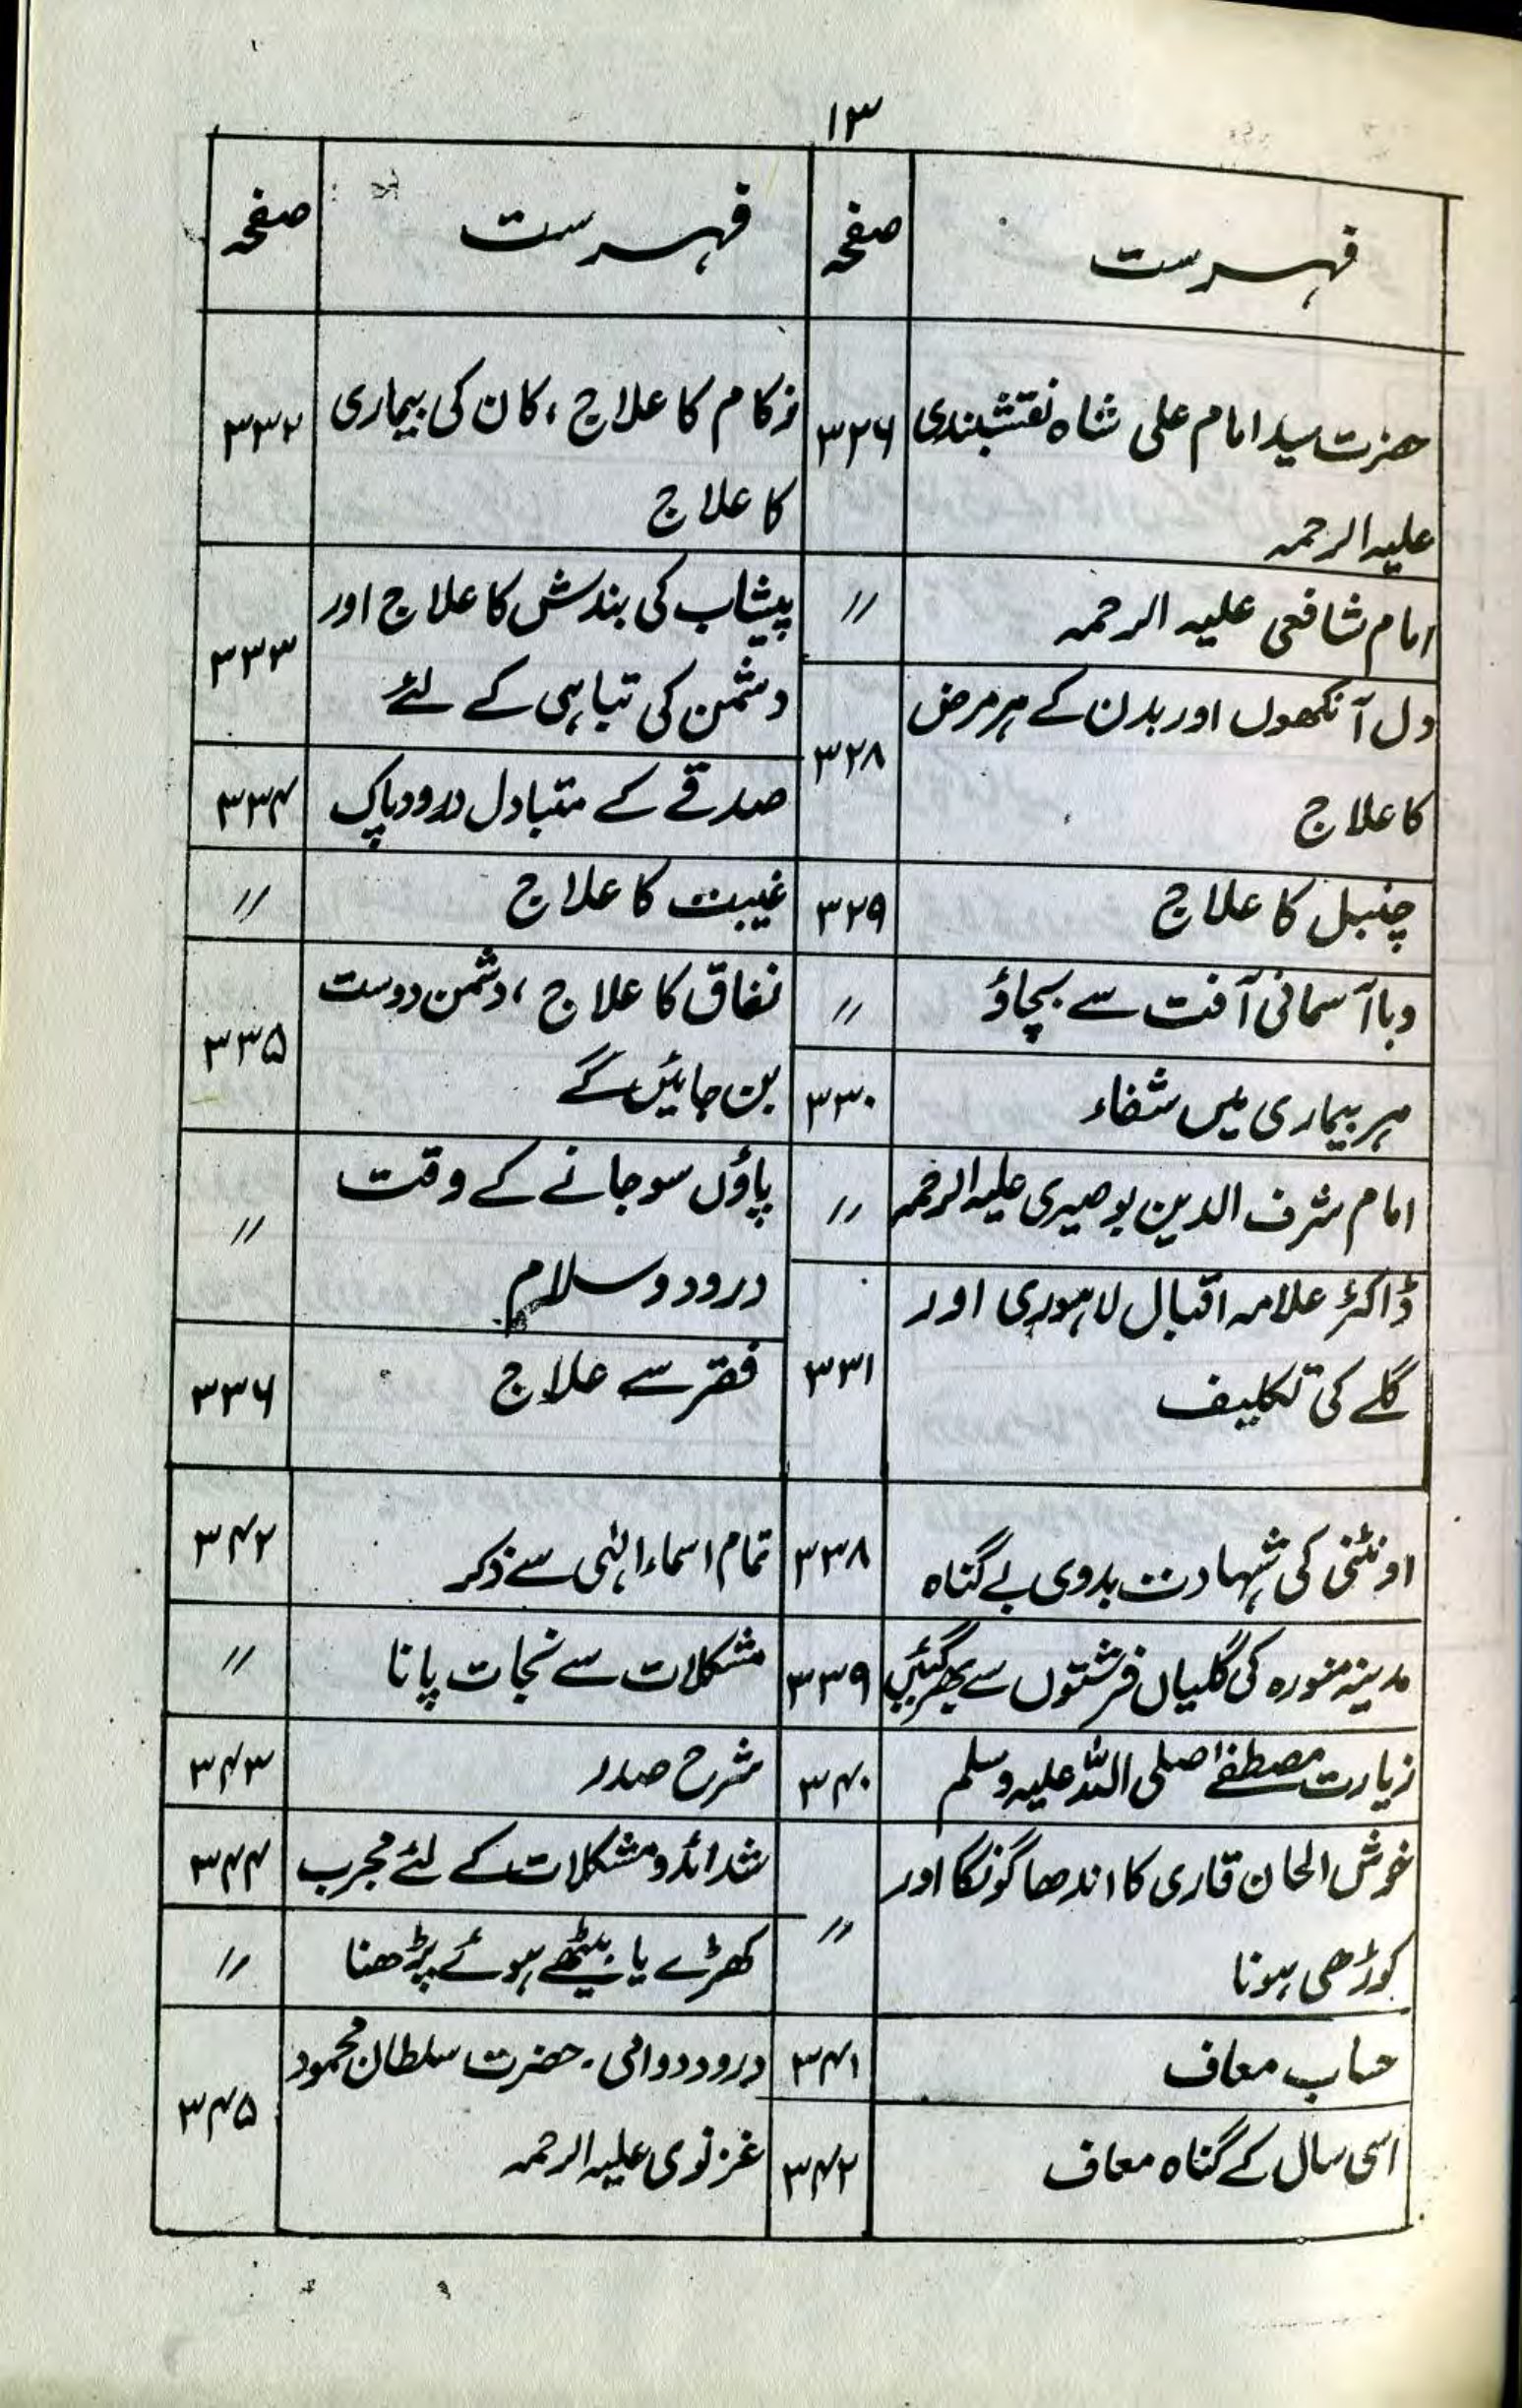 ۱۳
فہرست صفحہ
حضرت سید امام علی شاہ نقشبندی ۳۲۶
علیہ الرحمہ
امام شافعی علیہ الرحمہ ″
دل آنکھوں اور بدن کے ہر مرض ۳۲۸
کا علاج
چنبل کا علاج ۳۲۹
وبا آسمانی آفت سے بچاؤ ″
ہر بیماری میں شفاء ۳۳۰
امام شرف الدین بوصیری علیہ الرحمہ ″
ڈاکٹر علامہ اقبال لاہوری اور ۳۳۱
گلے کی تکلیف
اونٹنی کی شہادت بدوی بے گناہ ۳۳۸
مدینہ منورہ کی گلیاں فرشتوں سے بھر گئیں ۳۳۹
زیارت مصطفےٰ صلی اللہ علیہ وسلم ۳۴۰
خوش الحان قاری کا اندھا گونگا اور ″
کوڑھی ہونا
حساب معاف ۳۴۱
اسی سال کے گناہ معاف ۳۴۲
فہرست صفحہ
زکام کا علاج ، کان کی بیماری ۳۳۲
کا علاج
پیشاب کی بندش کا علاج اور ۳۳۳
دشمن کی تباہی کے لئے
صدقے کے متبادل درود پاک ۳۳۴
غیبت کا علاج ″
نفاق کا علاج ، دشمن دوست ۳۳۵
بن جائیں گے
پاؤں سو جانے کے وقت ″
درود و سلام
فقر سے علاج ۳۳۶
تمام اسماء الٰہی سے ذکر ۳۴۲
مشکلات سے نجات پانا ″
شرح صدر ۳۴۳
شدائد و مشکلات کے لئے مجرب ۳۴۴
کھڑے یا بیٹھے ہوئے پڑھنا ″
درود دوامی ۔ حضرت سلطان محمود ۳۴۵
غزنوی علیہ الرحمہ